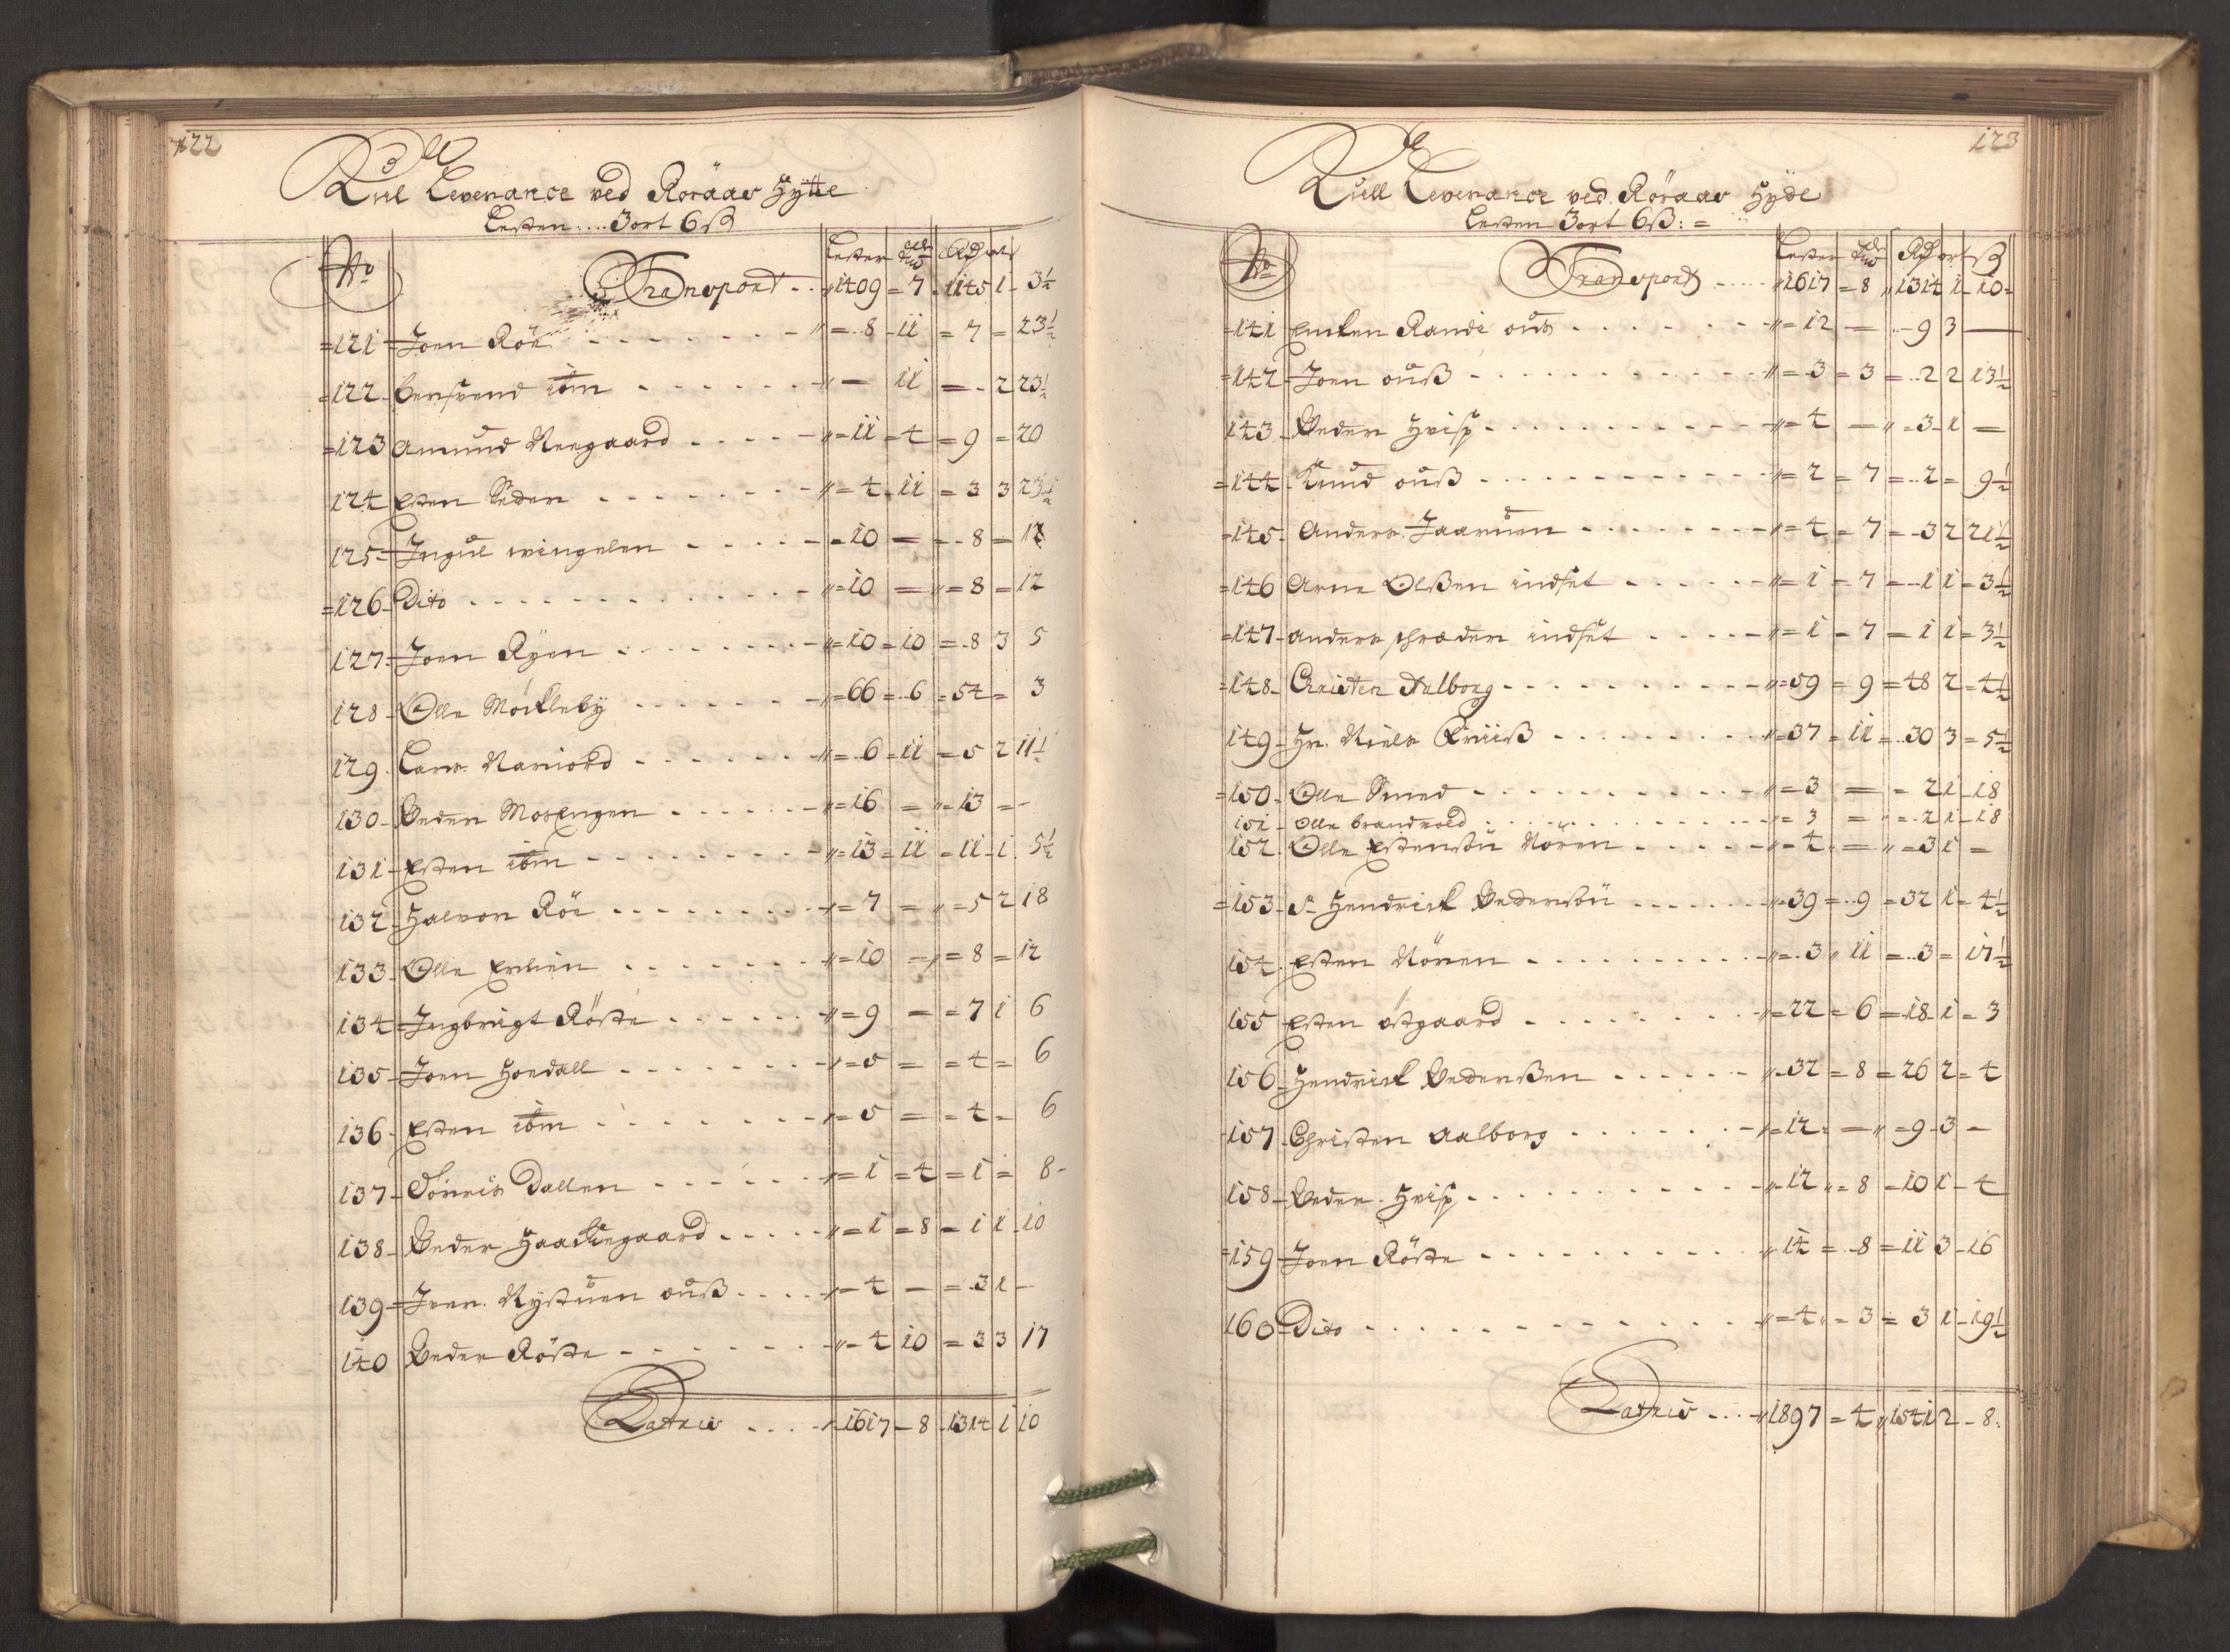 122
Kul Leverance ved Röraas Hytte
Lesten .... 3 ort 6 ß
No Lester tdr Rd ort
Transport .. 1409 = 7 - 1145 1 - 3½
121 Joen Röe = 8 - 11 = 7 = 23½
122 Bersvend ibm - 11 = - 2 23½
123 Amund Neegaard = 11 = 4 = 9 = 20
124 Esten Peder = 4 - 11 = 3 3 23½
125 Ingul wingelen = 10 = - 8 - 12
126 Dito = 10 = 8 = 12
127 Joen Ryen = 10 = 10 = 8 3 5
128 Olle Möckleby = 66 = 6 = 54 = 3
129 Lars = 6 = 11 = 5 2 11½
130 Peder Mosengen = 16 = 13 = -
131 Esten ibm = 13 = 11 = 11 - 1 5½
132 Halvor Röe = 7 = = 5 2 18
133 Olle Erlien = 10 = 8 = 12
134 Ingbrigt Röste = 9 = = 7 1 6
135 Joen Hordall = 5 = = 4 = 6
136 Esten ibm = 5 = = 4 = 6
137 Tönnis Dallen = 1 = 4 = 1 = 8 -
138 Peder Haackegaard = 1 = 8 - 1 1 - 10
139 Iver Nystuen ouß = 4 - = 3 1 -
140 Peder Röste = 4 10 = 3 3 17
Latris .... 1617 - 8 - 1314 1 10
123
Kull Leverance ved Röraas Hyde
Lesten 3 ort 6 ß: =
No Lester tdr Rd ort ß
Transport .... 1617 = 8 1314 1 - 10 -
141 Encken Randi ous = 12 - - 9 3 -
142 Joen ouß = 3 = 3 = 2 2 13½
143 Peder = 4 - = 3 - 1 -
144 Knud ouß = 2 = 7 = 2 = 9½
145 Anders Jaaruen = 4 = 7 = 3 2 21½
146 Arne Olßen indset = 1 = 7 = 1 1 = 3½
147 Anders schreder indset = 1 = 7 = 1 1 = 3½
148 Christen Aalborg = 59 = 9 = 48 2 = 4½
149 Hr. Niels Friiß = 37 = 11 = 30 3 = 5½
150 Olle Smed = 3 = - 2 1 - 18
151 Olle Brandvold = 3 = = 2 1 - 18
152 Olle Estensön Nören = 4 = = 3 1 =
153 Sr Hendrick Pedersön = 39 = 9 = 32 1 = 4½
154 Esten Nören = 3 11 = 3 = 17½
155 Esten östgaard = 22 = 6 = 18 1 = 3
156 Hendrick Pederßen = 32 = 8 = 26 2 = 4
157 Christen Aalborg = 12 - = 9 - 3 -
158 Peder = 12 = 8 = 10 1 - 4
159 Joen Röste 14 = 8 = 11 3 - 16
160 Dito = 4 = 3 = 3 1 - 19½
Latris ... 1897 = 4 1541 2 - 8